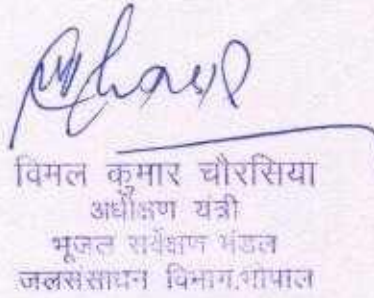 विमल कुमार चौरसिया
अधीक्षण यंत्री
भूजल सर्वेक्षण मंडल
जलसंसाधन विभाग,भोपाल